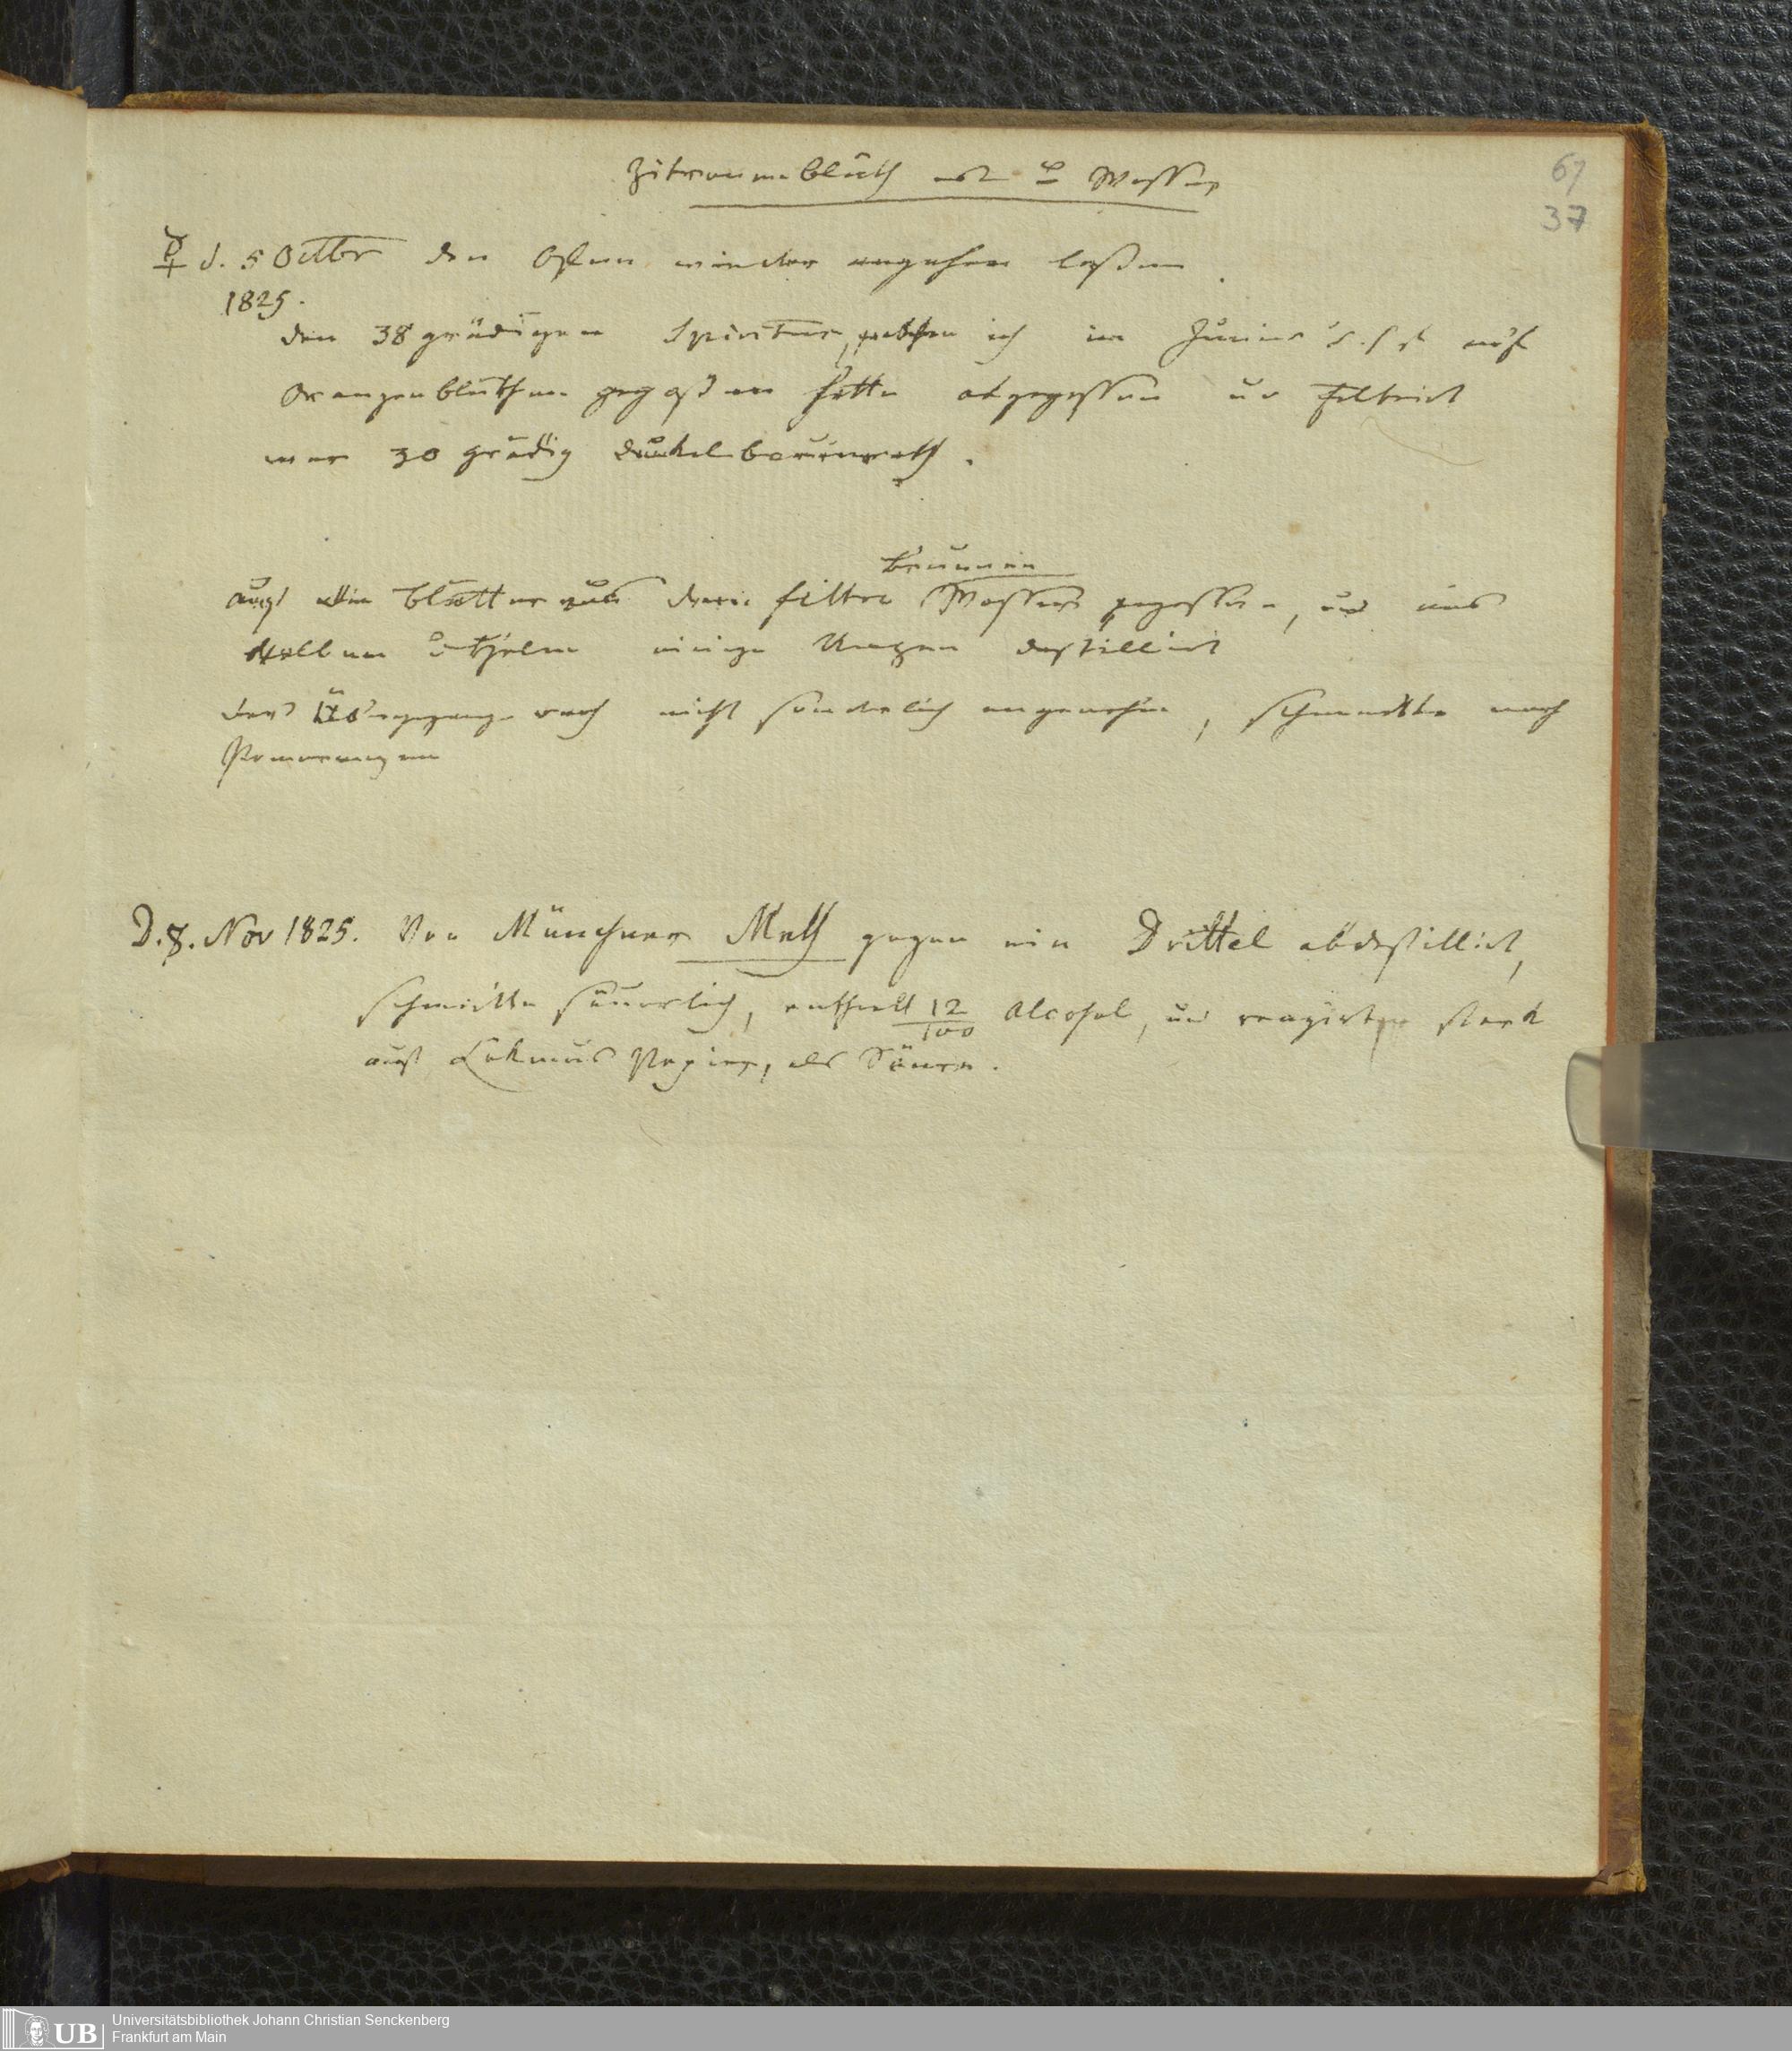 Zitronenblüth Wasser
67
37
☿ d. 5 Octbr den Ofen wieder angehen lassen
1825.
den 38 grädigen Spiritus, welchen ich im Junius auf
Orangenblüthen gegossen hatte abgegossen u filtrirt
war 30 grädig dunkelbraunroth.
Brunnen
auf die Blätter aus dem filtro Wasser gegossen, und aus
Kolben u Helm einige Unzen destillirt
das Übergegange roch nicht sonderlich angenehm, schmeckte nach
Pomeranzen
D. 8. Nov 1825. Von Münchner Meth gegen ein Drittel abdestillirt,
schmeckte säuerlich, enthielt 12/100 Alcohol, und reagirte stark
auf Lakmus Papier, als Säure.
UB
Universitätsbibliothek Johann Christian Senckenberg
Frankfurt am Main